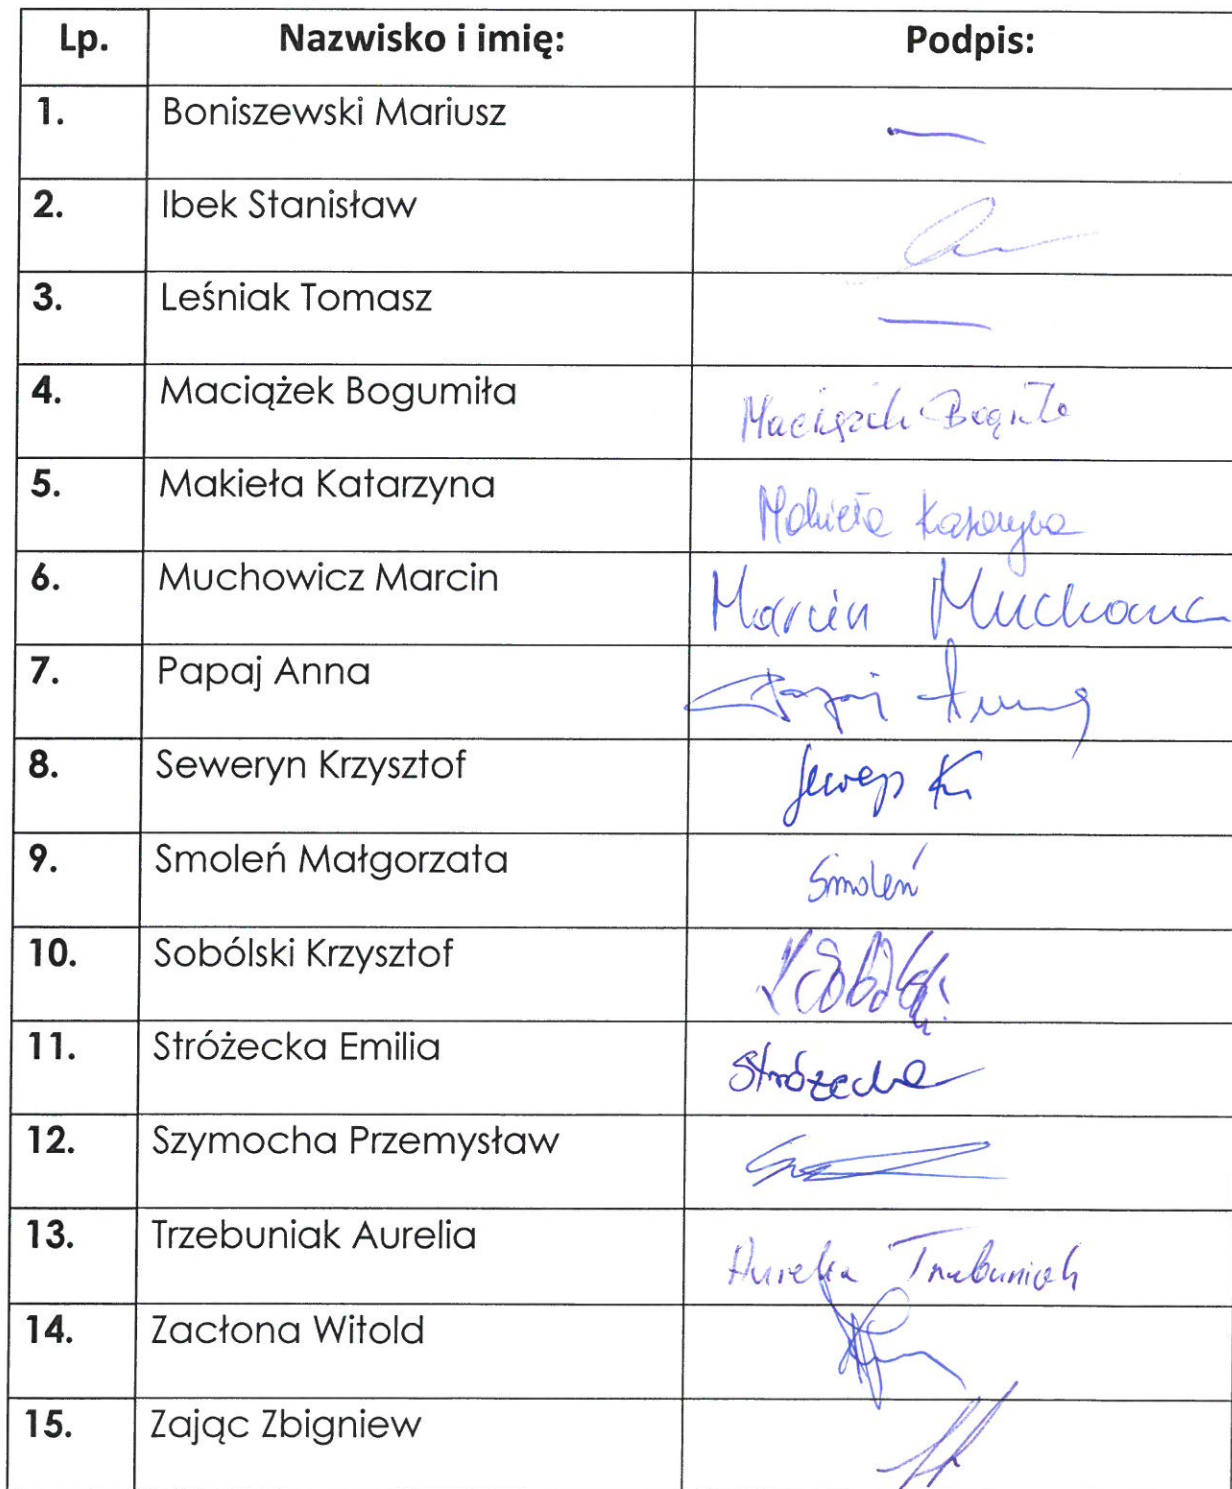 Lp. Nazwisko i imię: Podpis:
1. Boniszewski Mariusz —
2. Ibek Stanisław
3. Leśniak Tomasz —
4. Maciążek Bogumiła
5. Makieła Katarzyna Makieła Katarzyna
6. Muchowicz Marcin Marcin Muchowicz
7. Papaj Anna Papaj Anna
8. Seweryn Krzysztof
9. Smoleń Małgorzata Smoleń
10. Sobólski Krzysztof K Sobólski
11. Stróżecka Emilia Stróżecka
12. Szymocha Przemysław
13. Trzebuniak Aurelia Aurelia Trzebuniak
14. Zacłona Witold
15. Zając Zbigniew